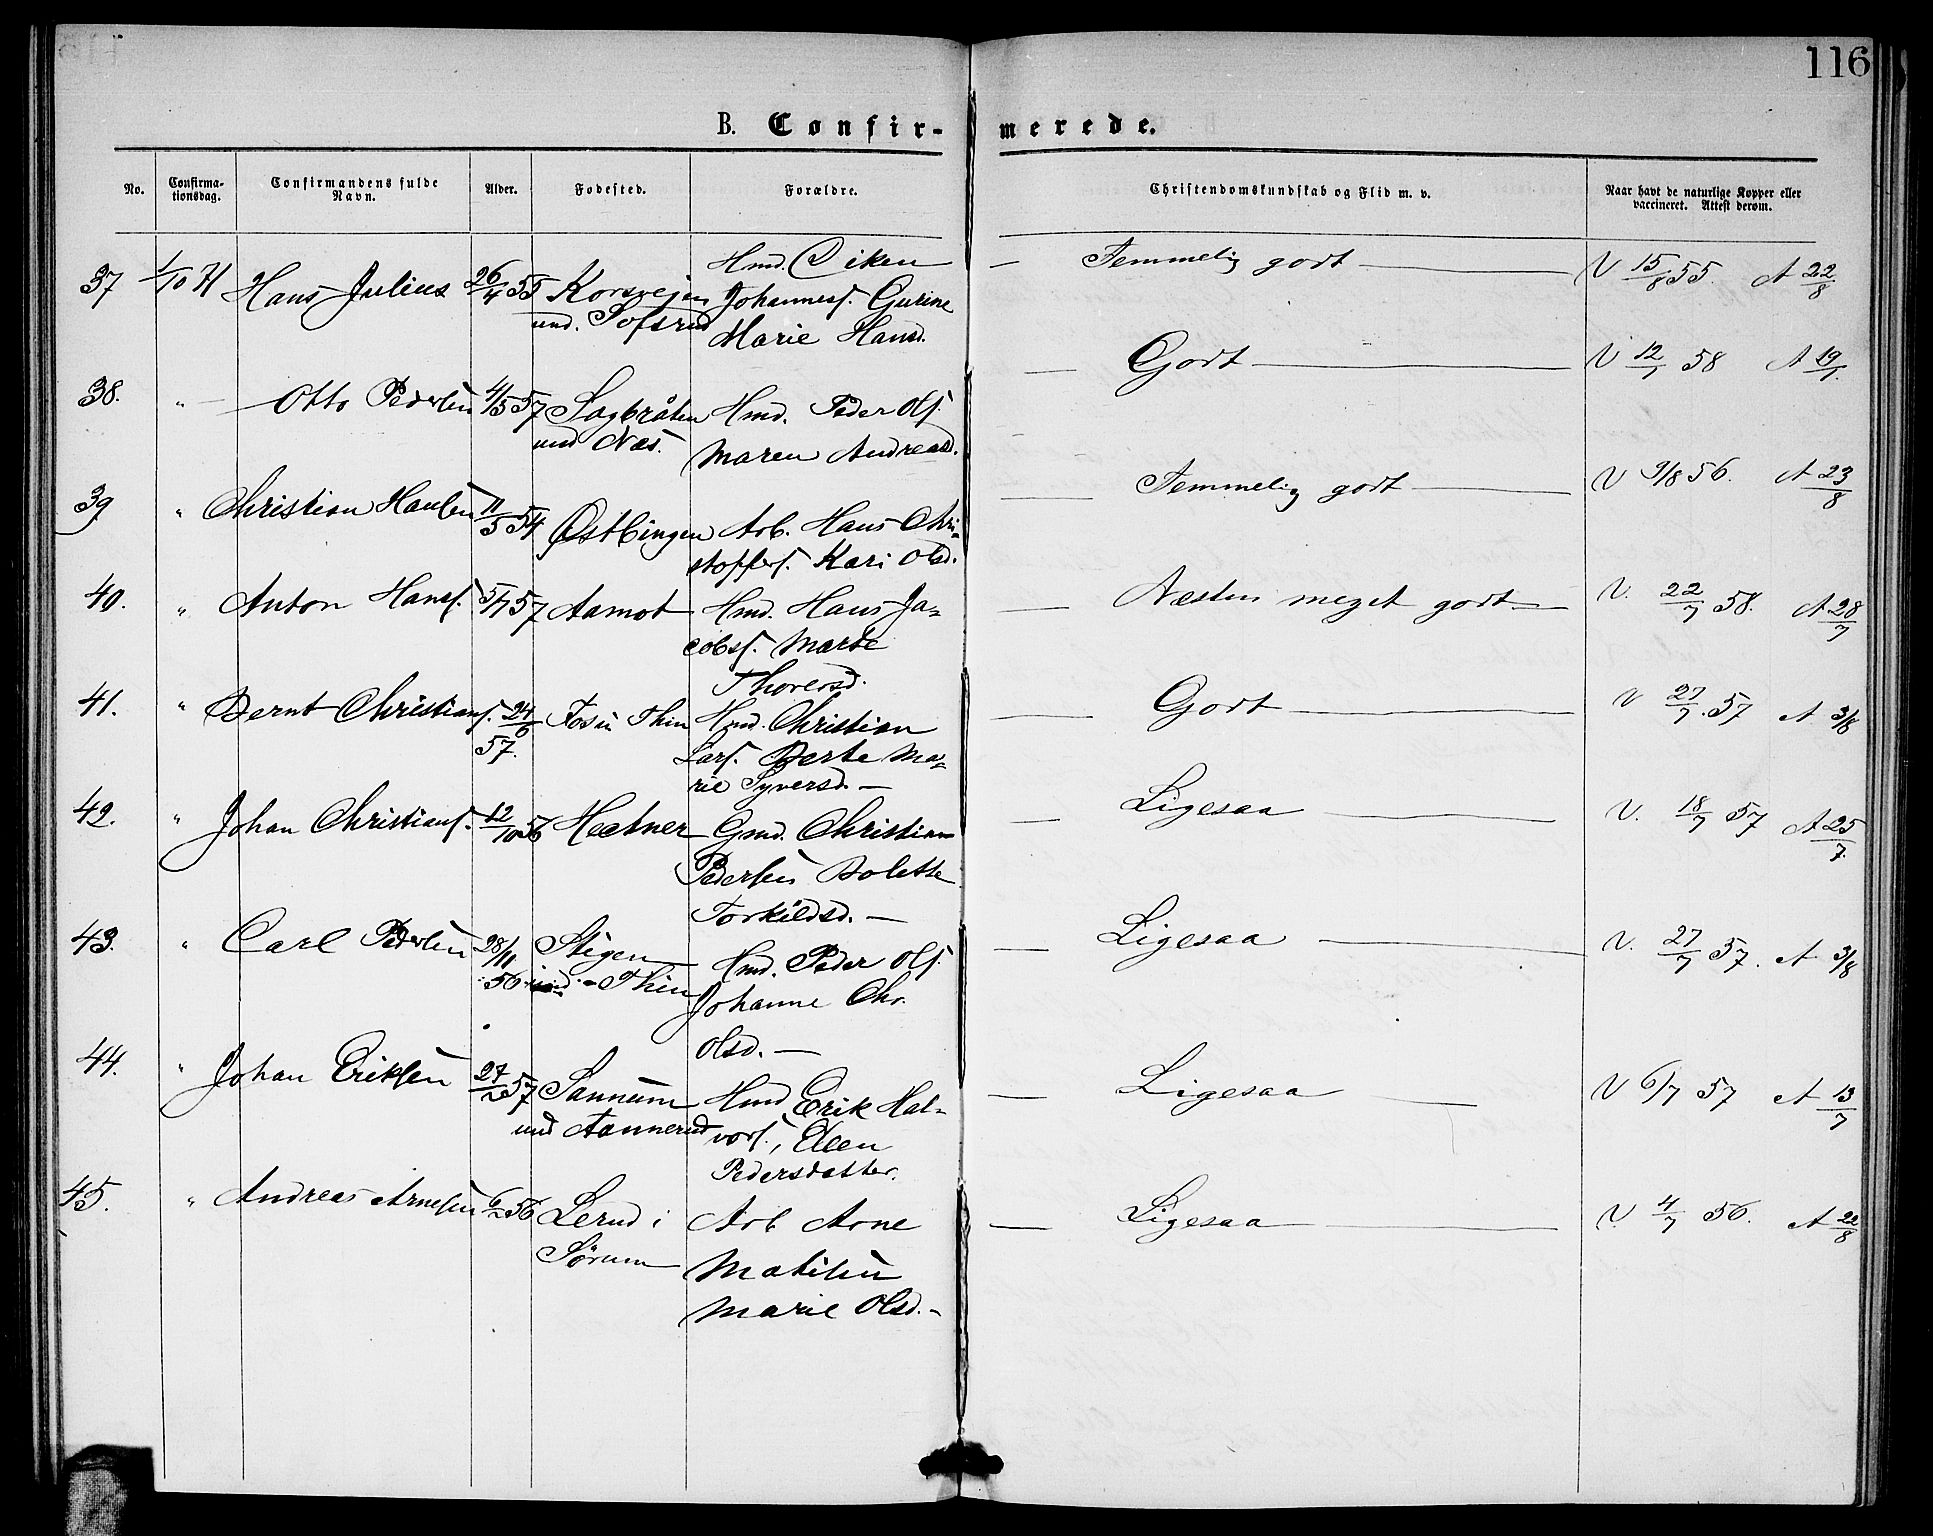 116
B. Confir- merede.
No. Confirma-tionsdag. Confirmandens fulde Navn. Alder. Fødested. Forældre. Christendomskundskab og Flid m. v. Naar havt de naturlige Kopper eller vaccineret. Attest derom.
37 1/10 71 Hans Julius 26/4 55 Korsvejen Hmd. — Temmelig godt — V 15/8 55. A 22/8
und. Tofsrud Johannesf. Gurine
Marie Hansd.
38. " Otto Pedersen 4/5 57 Sagbråten Hmd. Peder Ols. — Godt — V 12/7 58 A 19/7.
und Næs. Maren Andreasd.
39 " Christian Hansen 11/5 54 Østbingen Arb. Hans Chri- — Temmelig godt — V 9/8 56. A 23/8
stoffers. Kari Olsd.
40. " Anton Hans. 5/7 57 Aamot Hmd. Hans Ja- — Næsten meget godt — V. 22/7 58. A 28/7
cobsf. Marte
Thoresd.
41. " Bernt Christians. 24/6 Hmd. Christian — Godt — V 27/7. 57 A 3/8
57. Lars. Berte Ma-
rie Syversd. —
42. " Johan Christians. 12/10 56 Hectner Gmd. Christian — Ligesaa — V. 18/7 57 A 25/7.
Pedersen Bolette
Torkildsd. —
43. " Carl Pedersen 28/11 Stigen Hmd. Peder Ols. — Ligesaa — V. 27/7 57. A 3/8
56 und. Thin Johanne Chr.
Olsd. —
44. " Johan Eriksen 27/2 57 Sannum Hmd Erik Hal- — Ligesaa — V 6/7 57 A 13/7
und Aannerud vors., Elen
Pedersdatter.
45. " Andreas Arnesen 6/2 56 Lerud i Arb Arne — Ligesaa — V. 4/7 56. A 22/8
Sørum Matisen
Marie Olsd. —